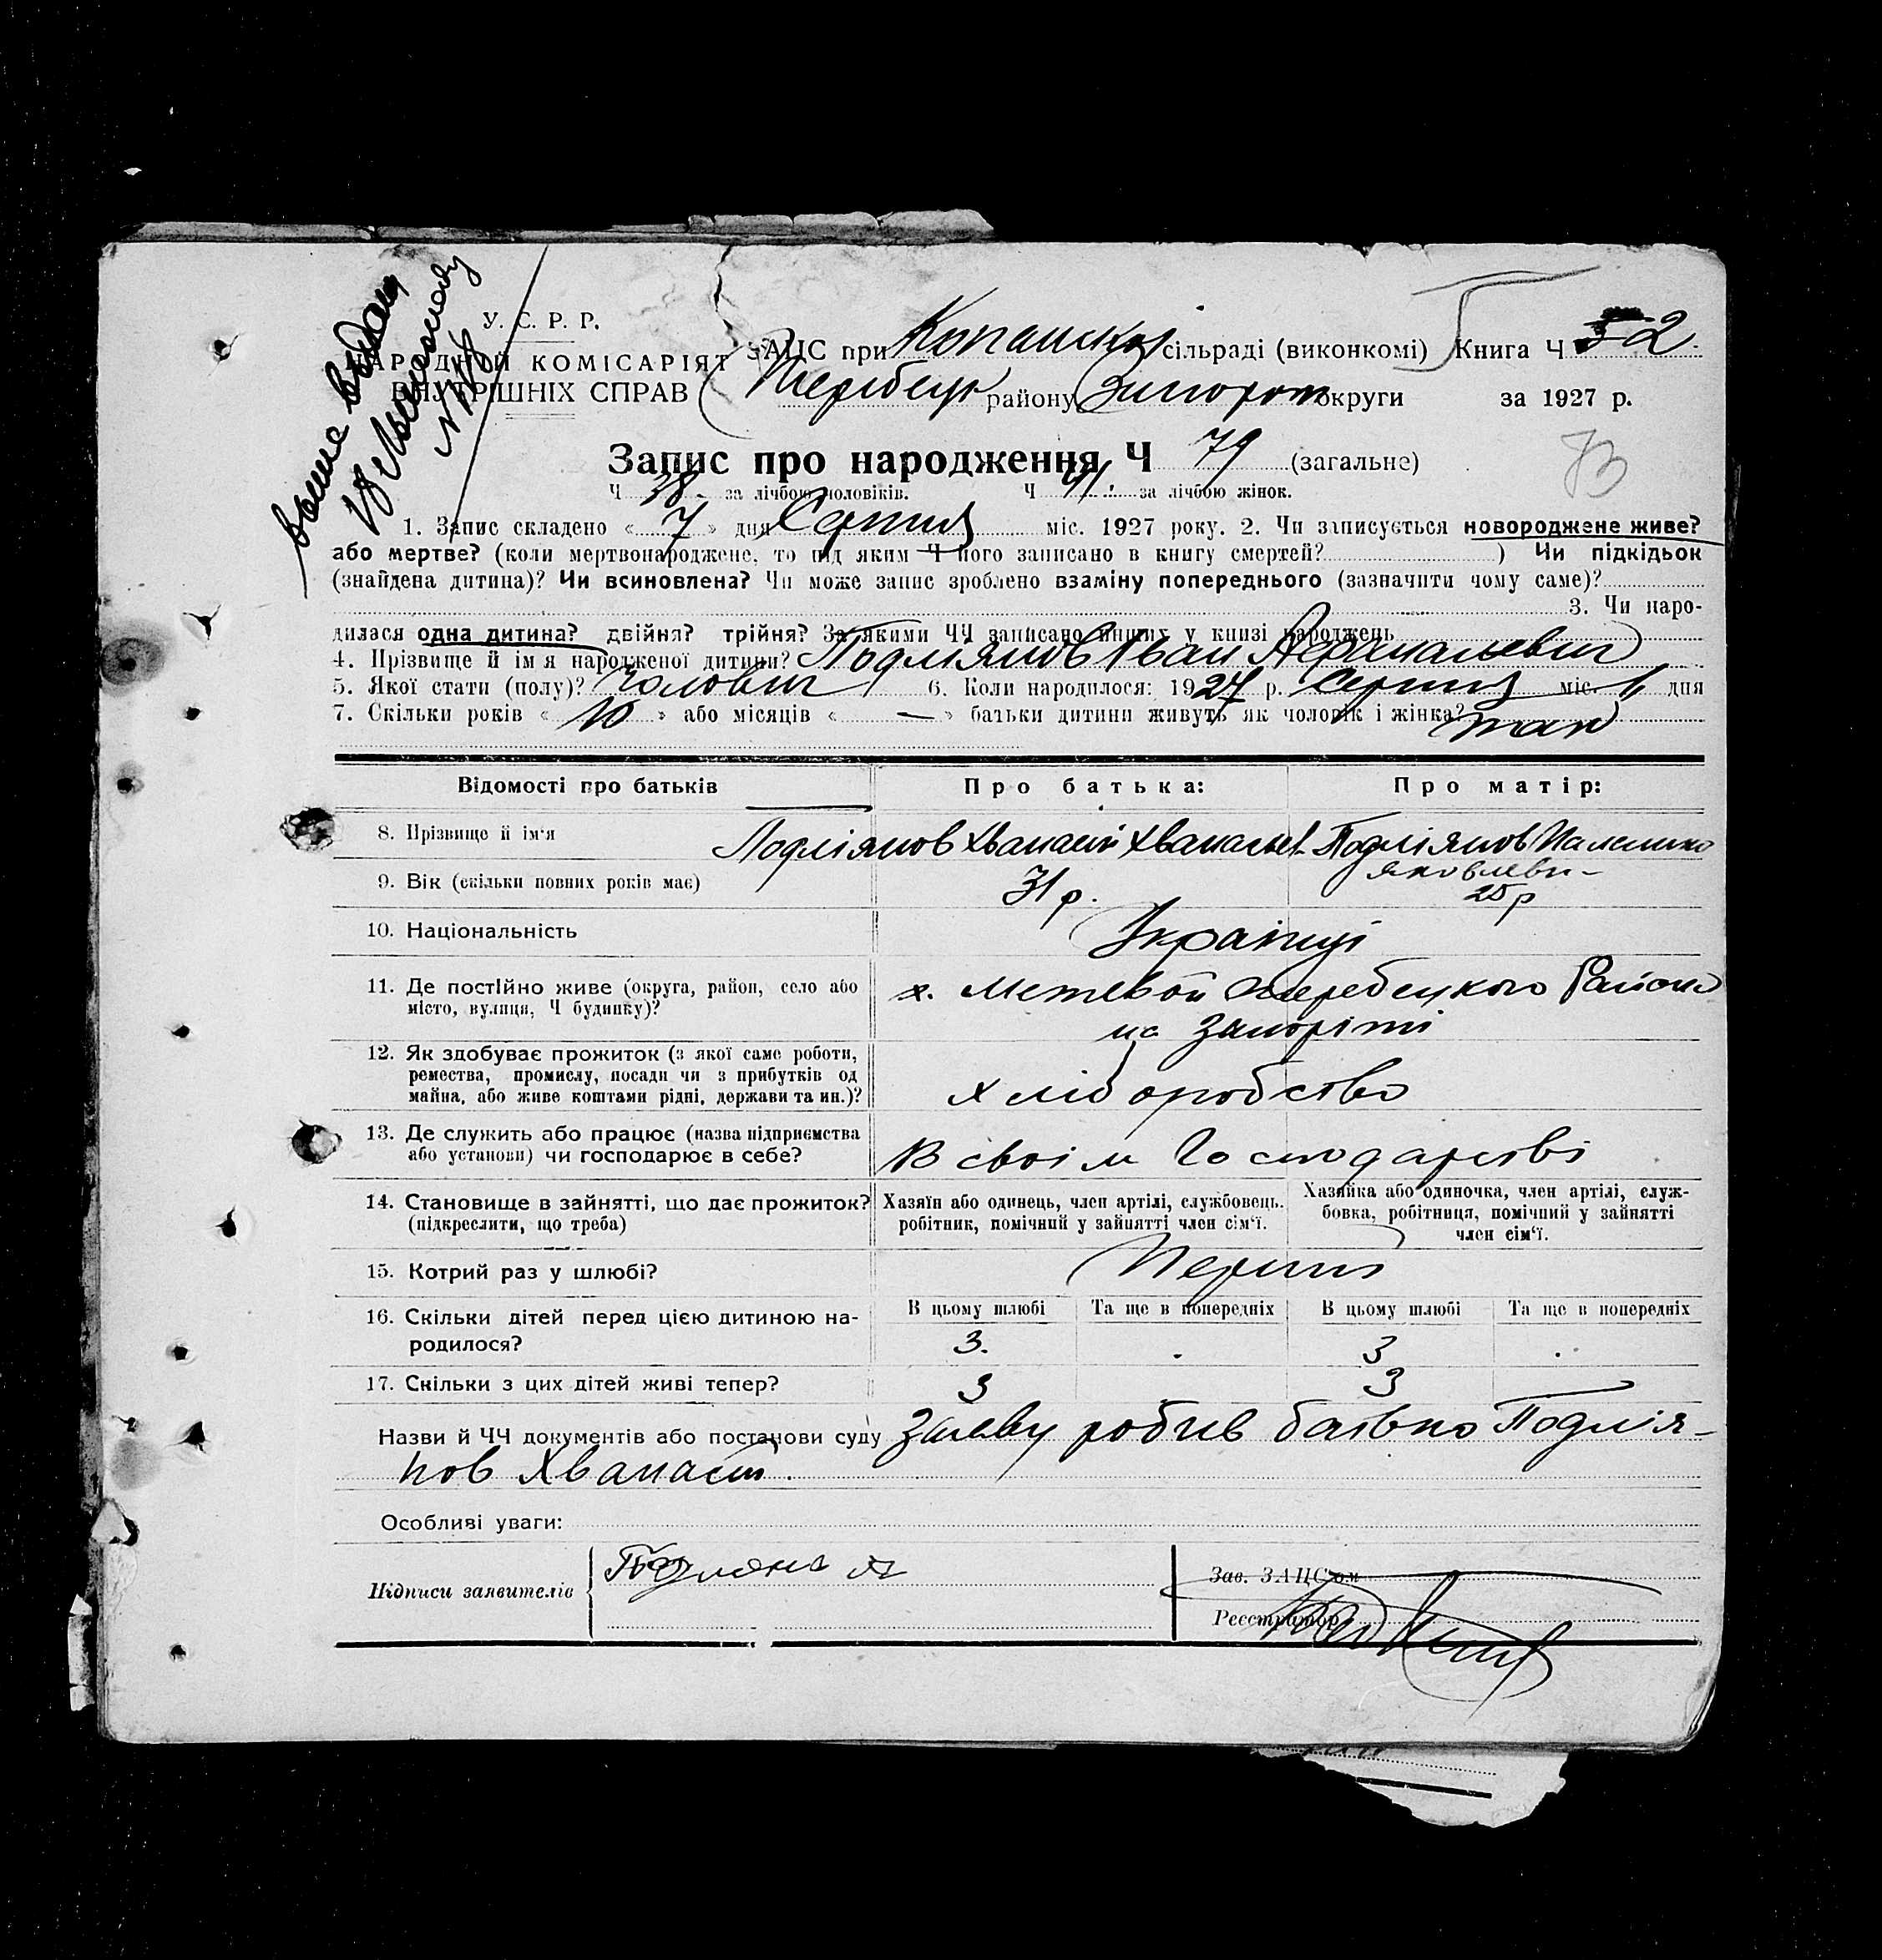 У. С. Р. Р.
НАРОДНІЙ КОМІСАРІЯТ
ВНУТРІШНІХ СПРАВ
ЗАЦС при сільраді (виконкомі) Книга Ч 52
району округи за 1927 р.
Запис про народження Ч 79 (загальне)
Ч 38 за лічбою чоловіків. Ч 41 за лічбою жінок.
1. Запис складено « 7 » дня Серпня міс. 1927 року. 2. Чи записується новороджене живе?
або мертве? (коли мертвонароджене, то під яким Ч його записано в книгу смертей? ) Чи підкідьок
(знайдена дитина)? Чи всиновлена? Чи може запис зроблено взаміну попереднього (зазначити чому саме)?
3. Чи наро-
дилася одна дитина? двійня? трійня? За якими ЧЧ записано инших у книзі народжень
4. Прізвище й ім'я народженої дитини? Подліянов Іван
5. Якої стати (полу)? 6. Коли народилося: 1927 р. Серпня міс. дня
7. Скільки років « 10 » або місяців « — » батьки дитини живуть як чоловік і жінка? так
Відомості про батьків Про батька: Про матір:
8. Прізвище й ім'я Подліянов Хванасій Подліянов
9. Вік (скільки повних років має) 31 р. 25 р
10. Національність Українці
11. Де постійно живе (округа, район, село або х. Района
місто, вулиця, Ч будинку)? на Запоріжжі
12. Як здобуває прожиток (з якої саме роботи,
ремества, промислу, посади чи з прибутків од
майна, або живе коштами рідні, держави та ин.)? хліборобство
13. Де служить або працює (назва підприємства
або установи) чи господарює в себе? В своїм Господарстві
14. Становище в зайнятті, що дає прожиток? Хазяїн або одинець, член артілі, службовець, Хазяйка або одиночка, член артілі, служ-
(підкреслити, що треба) робітник, помічний у зайнятті член сім'ї. бовка, робітниця, помічний у зайнятті
член сім'ї.
15. Котрий раз у шлюбі?
16. Скільки дітей перед цією дитиною на- В цьому шлюбі Та ще в попередніх В цьому шлюбі Та ще в попередніх
родилося? 3. 3
17. Скільки з цих дітей живі тепер? 3 3
Назви й ЧЧ документів або постанови суду Заяву робив батько Подлія-
нов Хванасій.
Особливі уваги:
Підписи заявителів Зав. ЗАЦС'ом
Реєстратор